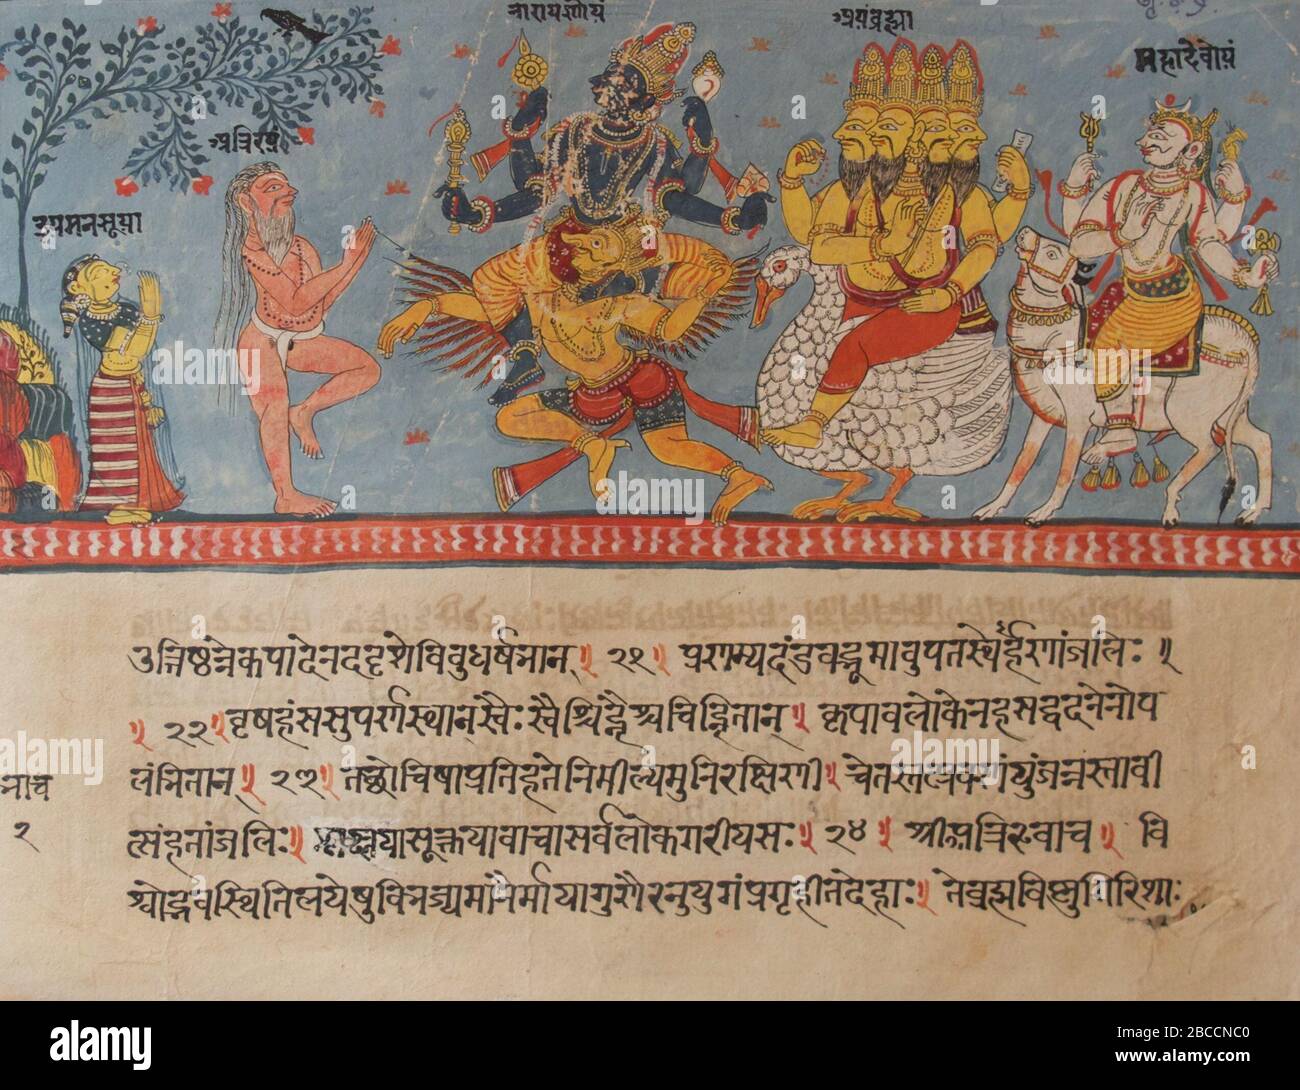 नारायणोयं
अयंब्रह्मा
महादेवोयं
अत्रिरयं
इयमनसूया
उत्तिष्ठन्नेकपादेनददृशेविबुधर्षभान्॥ २१॥ प्रणम्यदंडवद्भूमावुपतस्थेर्हणांजलिः ॥
॥ २२॥ वृषहंससुपर्णस्थान्स्वैःस्वैश्चिह्नैश्चचिह्नितान्॥ कृपावलोकेनहसद्वदनेनोप
लंभितान्॥ २३॥ तद्रोचिषाप्रतिहतेनिमील्यमुनिरक्षिणी॥ चेतस्तत्प्रवणंयुंजन्नस्तावी
त्संहतांजलिः॥ श्लक्ष्णयासूक्तयावाचासर्वलोकगरीयसः॥ २४॥ श्रीअत्रिरुवाच॥ वि
श्वोद्भवस्थितिलयेषुविभज्यमानैर्मायागुणैरनुयुगंप्रगृहीतदेहाः॥ तेब्रह्मविष्णुगिरिशाः
भाच
२
alamy
Image ID: 2BCCNC0
www.alamy.com